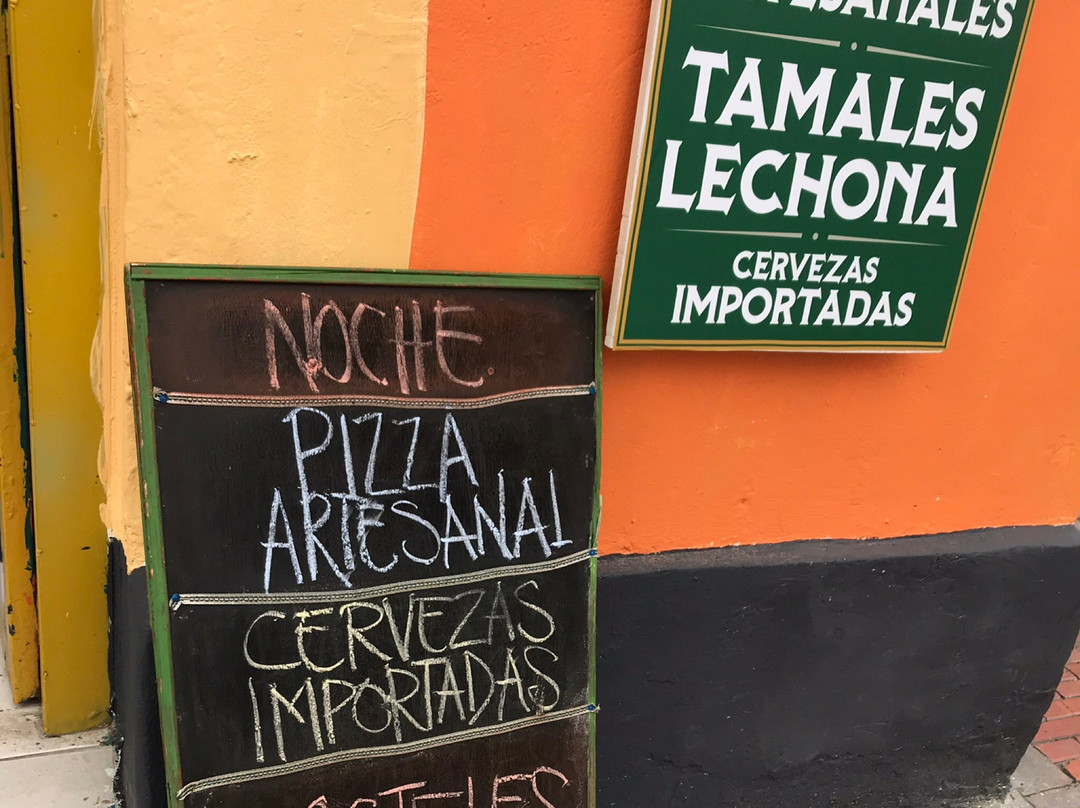 NOCHE.
PIZZA
ARTESANAL
CERVEZAS
IMPORTADAS
TAMALES
LECHONA
CERVEZAS
IMPORTADAS